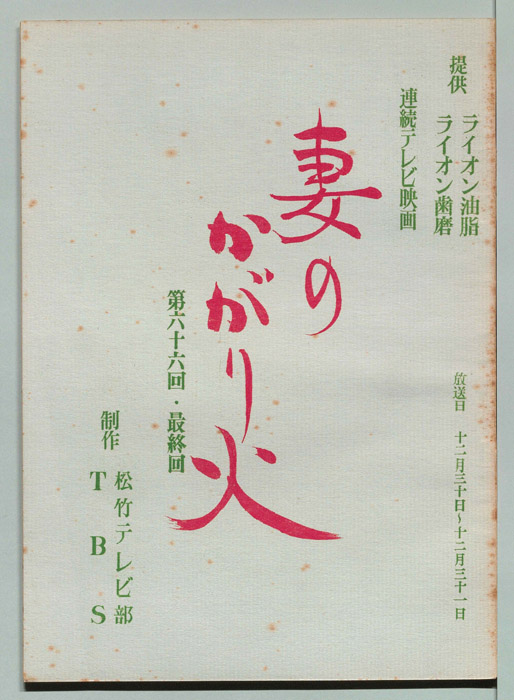 提供 ライオン油脂
ライオン歯磨
連続テレビ映画
妻の
かがり火
第六十六回・最終回
放送日 十二月三十日～十二月三十一日
制作 松竹テレビ部
TBS